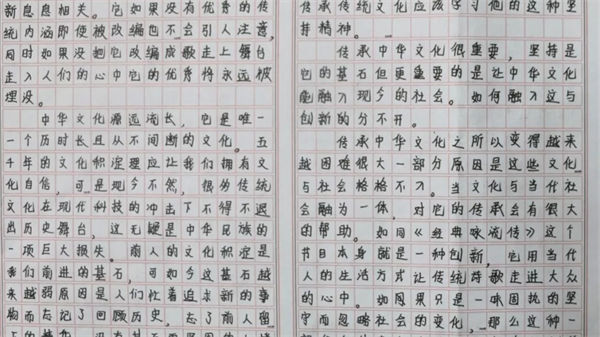 新息息相关。它如果没有优秀的传
统内涵即使被改编也不会引人注意，
同时如果没把它改编成歌走上舞台
走入人们的心中它的优秀将永远被
埋没。
中华文化源远流长，它是唯一
一个历时长且从不间断的文化。五
千年的文化积淀理应让我们拥有文
化自信，可是现今不然，很多传统
文化在现代科技的冲击下不得不退
出历史舞台，这无疑是中华民族的
一项巨大损失。前人的文化积淀是
我们前进的基石，可如今这基石越
来越弱原因是人们忙着追求新的事
物而忘记了回顾历史，忘了前人留
传承传统文化应该学习他的这种坚
持精神。
传承中华文化很重要，坚持是
它的基石但更重要的是让中华文化
能融入现今的社会。如何融入这与
创新的分不开。
传承中华文化之所以变得越来
越困难很大一部分原因是这些文化
与社会格格不入。当文化与当代社
会融为一体，对它的传承会有很大
的帮助。如同《经典咏流传》这个
节目本身就是一种创新，它用当代
人的生活方式让传统诗歌走进大众
的心中。如果只是一味固执的坚
守而忽略社会的变化，那么这种一